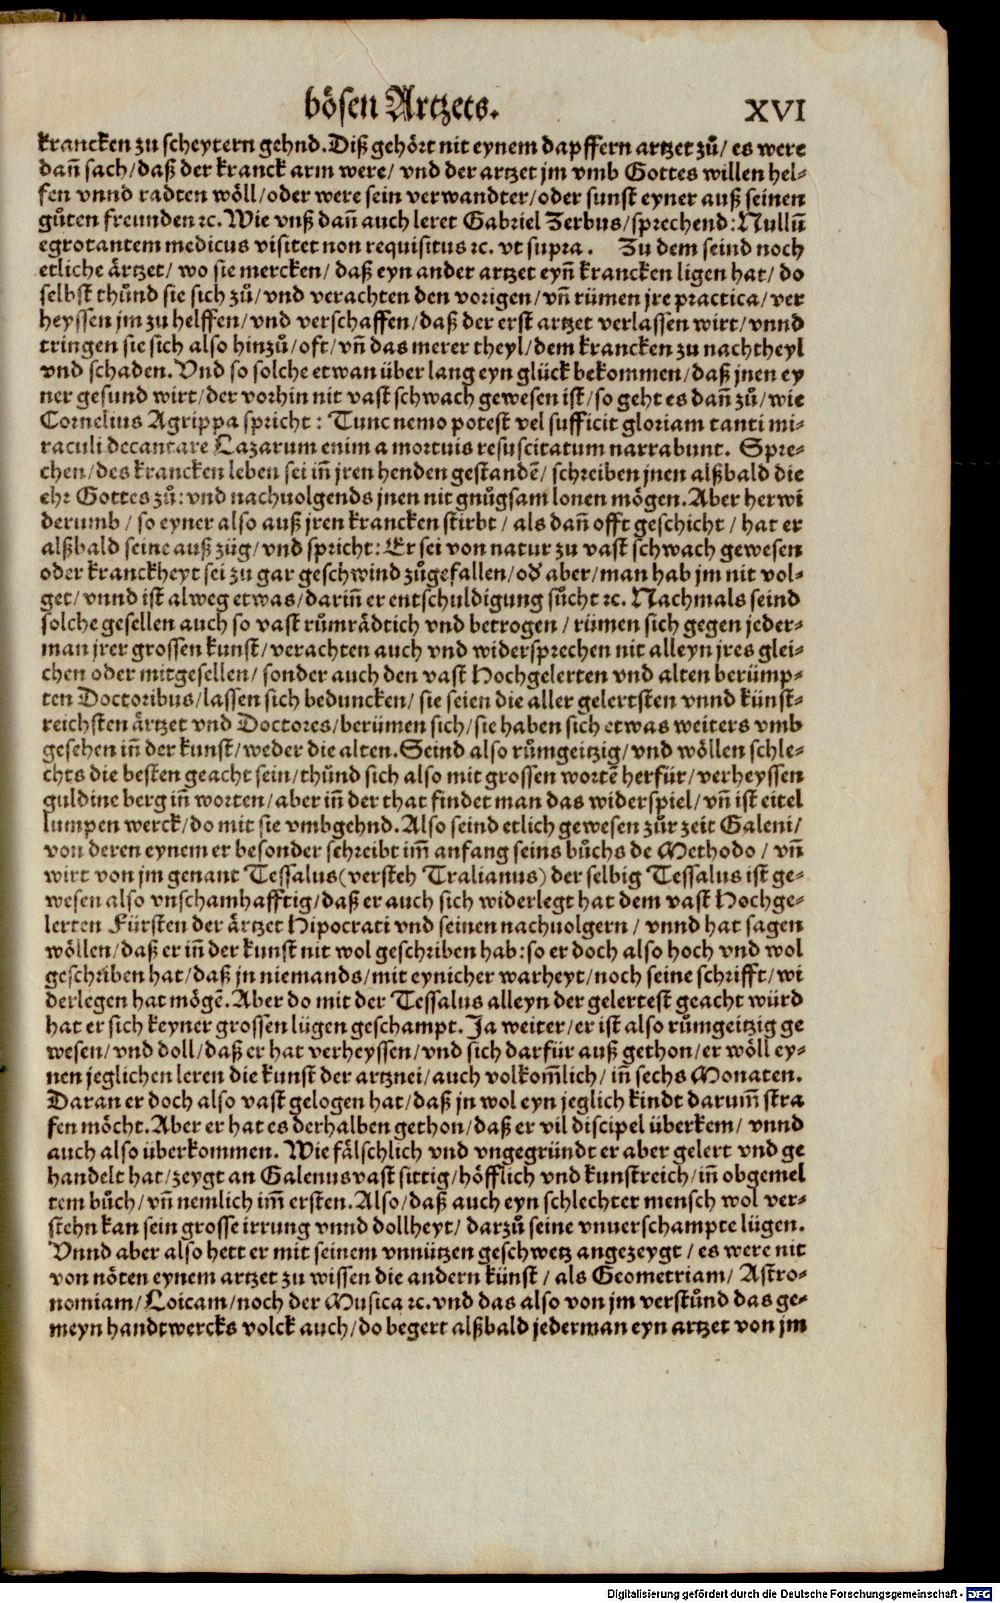 bösen Artzets. XVI
krancken zu scheytern gehnd. Diß gehört nit eynem dapffern artzet zů/ es were
dañ sach/ daß der kranck arm were/ vnd der artzet jm vmb Gottes willen hel-
fen vnnd radten wöll/ oder were sein verwandter/ oder sunst eyner auß seinen
gůten freunden ꝛc. Wie vnß dañ auch leret Gabriel Zerbus/ sprechend: Nullū
egrotantem medicus visitet non requisitus ꝛc. vt supra. Zu dem seind noch
etliche ärtzet/ wo sie mercken/ daß eyn ander artzet eyñ krancken ligen hat/ do
selbst thůnd sie sich zů/ vnd verachten den vorigen/ vñ rümen jre practica/ ver
heyssen jm zu helffen/ vnd verschaffen/ daß der erst artzet verlassen wirt/ vnnd
tringen sie sich also hinzů/ oft/ vñ das merer theyl/ dem krancken zu nachtheyl
vnd schaden. Vnd so solche etwan über lang eyn glück bekommen/ daß jnen ey
ner gesund wirt/ der vorhin nit vast schwach gewesen ist/ so geht es dañ zů/ wie
Cornelius Agrippa spricht: Tunc nemo potest vel sufficit gloriam tanti mi-
raculi decantare Lazarum enim a mortuis resuscitatum narrabunt. Spre-
chen/ des krancken leben sei iñ jren henden gestandē/ schreiben jnen alßbald die
ehr Gottes zů: vnd nachuolgends jnen nit gnůgsam lonen mögen. Aber herwi
derumb/ so eyner also auß jren krancken stirbt/ als dañ offt geschicht/ hat er
alßbald seine auß züg/ vnd spricht: Er sei von natur zu vast schwach gewesen
oder kranckheyt sei zu gar geschwind zůgefallen/ od' aber/ man hab jm nit vol-
get/ vnnd ist alweg etwas/ dariñ er entschuldigung sůcht ꝛc. Nachmals seind
solche gesellen auch so vast růmrädtich vnd betrogen/ rümen sich gegen jeder-
man jrer grossen kunst/ verachten auch vnd widersprechen nit alleyn jres glei-
chen oder mitgesellen/ sonder auch den vast Hochgelerten vnd alten berümp-
ten Doctoribus/ lassen sich beduncken/ sie seien die aller gelertsten vnnd künst-
reichsten ärtzet vnd Doctores/ berümen sich/ sie haben sich etwas weiters vmb
gesehen iñ der kunst/ weder die alten. Seind also růmgeitzig/ vnd wöllen schle-
chts die besten geacht sein/ thůnd sich also mit grossen wortē herfür/ verheyssen
guldine berg iñ worten/ aber iñ der that findet man das widerspiel/ vñ ist eitel
lumpen werck/ do mit sie vmbgehnd. Also seind etlich gewesen zůr zeit Galeni/
von deren eynem er besonder schreibt im̃ anfang seins bůchs de Methodo/ vñ
wirt von jm genant Tessalus (versteh Tralianus) der selbig Tessalus ist ge-
wesen also vnschamhafftig/ daß er auch sich widerlegt hat dem vast Hochge-
lerten Fürsten der ärtzet Hipocrati vnd seinen nachuolgern/ vnnd hat sagen
wöllen/ daß er iñ der kunst nit wol geschriben hab: so er doch also hoch vnd wol
geschriben hat/ daß jn niemands/ mit eynicher warheyt/ noch seine schrifft/ wi
derlegen hat mögē. Aber do mit der Tessalus alleyn der gelertest geacht würd
hat er sich keyner grossen lügen geschampt. Ja weiter/ er ist also růmgeitzig ge
wesen/ vnd doll/ daß er hat verheyssen/ vnd sich darfür auß gethon/ er wöll ey-
nen jeglichen leren die kunst der artznei/ auch volkom̃lich/ iñ sechs Monaten.
Daran er doch also vast gelogen hat/ daß jn wol eyn jeglich kindt darum̃ stra
fen möcht. Aber er hat es derhalben gethon/ daß er vil discipel überkem/ vnnd
auch also überkommen. Wie fälschlich vnd vngegründt er aber gelert vnd ge
handelt hat/ zeygt an Galenus vast sittig/ höfflich vnd kunstreich/ iñ obgemel
tem bůch/ vñ nemlich im̃ ersten. Also/ daß auch eyn schlechter mensch wol ver-
stehn kan sein grosse irrung vnnd dollheyt/ darzů seine vnuerschampte lügen.
Vnnd aber also hett er mit seinem vnnützen geschwetz angezeygt/ es were nit
von nöten eynem artzet zu wissen die andern künst/ als Geometriam/ Astro-
nomiam/ Loicam/ noch der Musica ꝛc. vnd das also von jm verstůnd das ge-
meyn handtwercks volck auch/ do begert alßbald jederman eyn artzet von jm
Digitalisierung gefördert durch die Deutsche Forschungsgemeinschaft - DFG